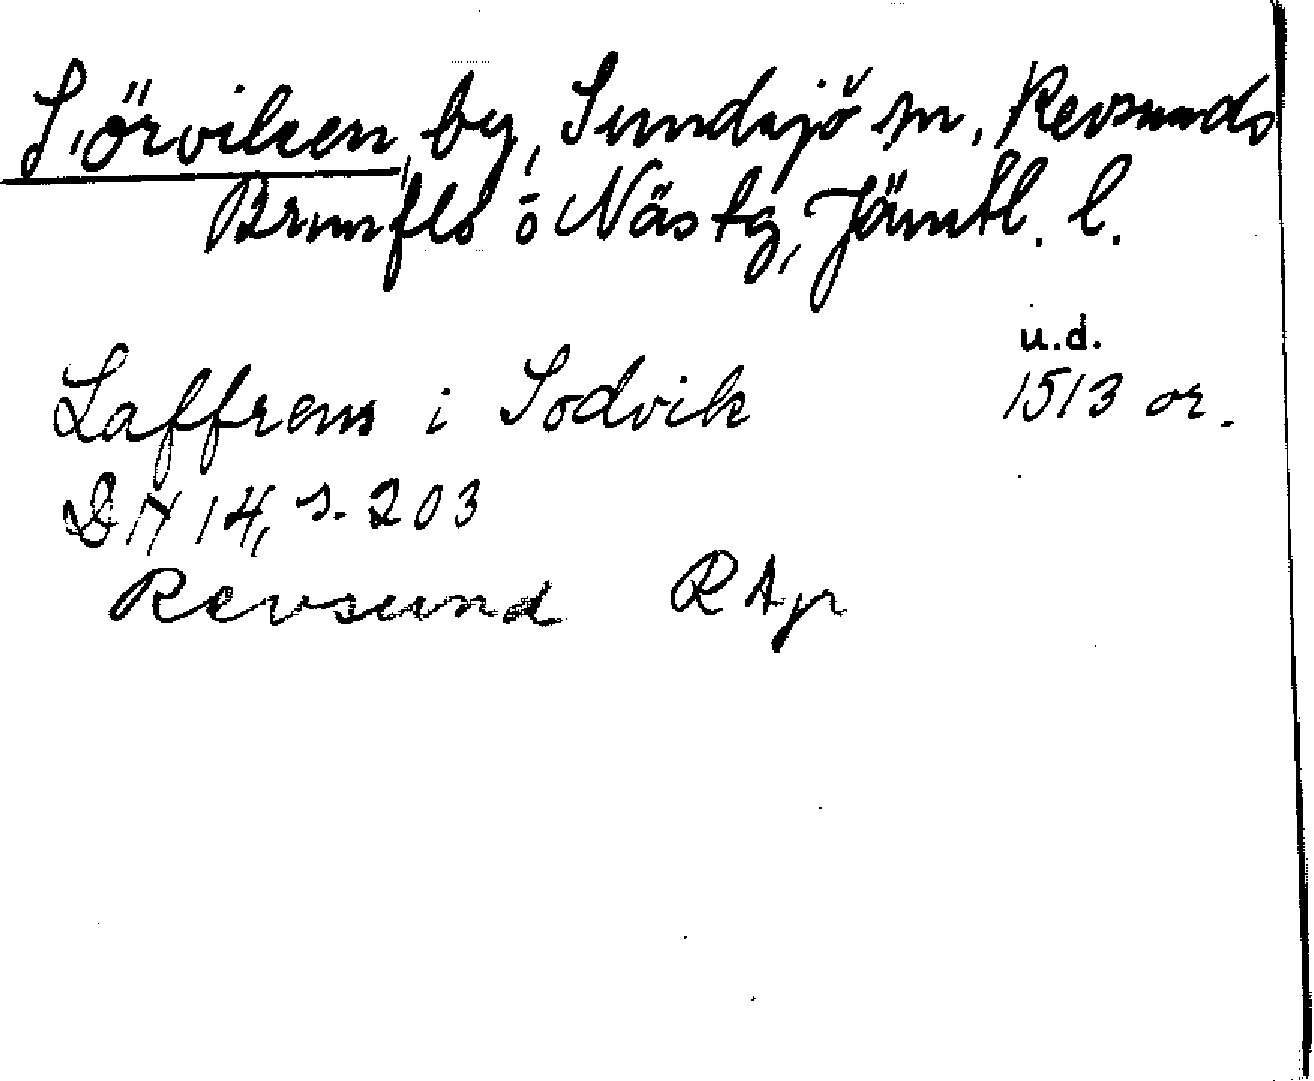 Sörviken, by, Sundsjö sn, Revsunds
Brunflo o Näs tg, Jämtl. l.
u.d.
Laffrens i Sodvik 1513 or.
DN 14, s. 203
Revsund RAp